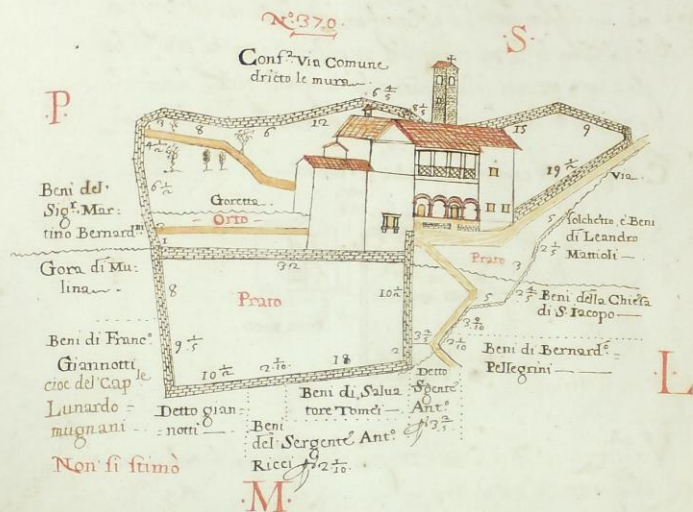 N.º 370.
·S·
Conf.ª Via Comune
drieto le mura
·P·
6 4/5
8 1/5
3
8
6
12
15
9
4 1/2
6 1/2
19 1/2
Via
Beni del
Sig.r Mar:
tino Bernard.ni
Goretta
Orto
5
Solchetto, e Beni
di Leandro
Mattioli
2 1/5
Prato
3
Gora di Mu:
lina
1
32
8
Prato
10 1/2
5
2 4/5
Beni della Chiesa
di S. Iacopo
3 9/10
2 1/10
3 2/5
Beni di Franc.º
Giannotti
cioè del Cap.le
Lunardo =
mugnani
9 1/2
10 1/2
2 1/10
18
2
Beni di Bernard.º =
Pellegrini
Detto gian=
notti
Beni di Salva
tore Tomei
Detto
Sgente
Ant.º
3 2/5
Beni
del Sergente Ant.º
Ricci
2 1/10
Non si stimò
·M·
L